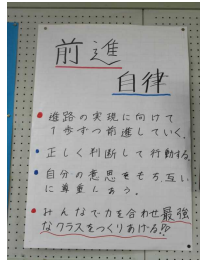 前進
自律
進路の実現に向けて
1歩ずつ前進していく.
正しく判断して行動する
自分の意思をもち,互い
に尊重しあう.
みんなで力を合わせ最強
なクラスをつくりあげる!!